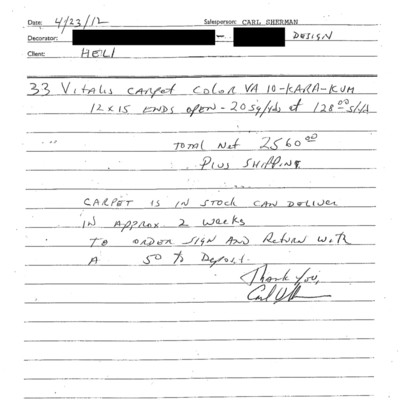 Date: 4/23/12 Salesperson: CARL SHERMAN
Decorator: - DESIGN
Client: HELI
33 VITALIS CARPET COLOR VA 10-KARA-KUM
12 x 15 ENDS OPEN - 20 sq/yds at 128.00
TOTAL Net 2560.00
Plus SHIPPING
CARPET IS IN STOCK CAN DELIVER
IN APPROX 2 weeks
TO ORDER SIGN AND RETURN WITH
A 50 % Deposit.
Thank You,
Carl